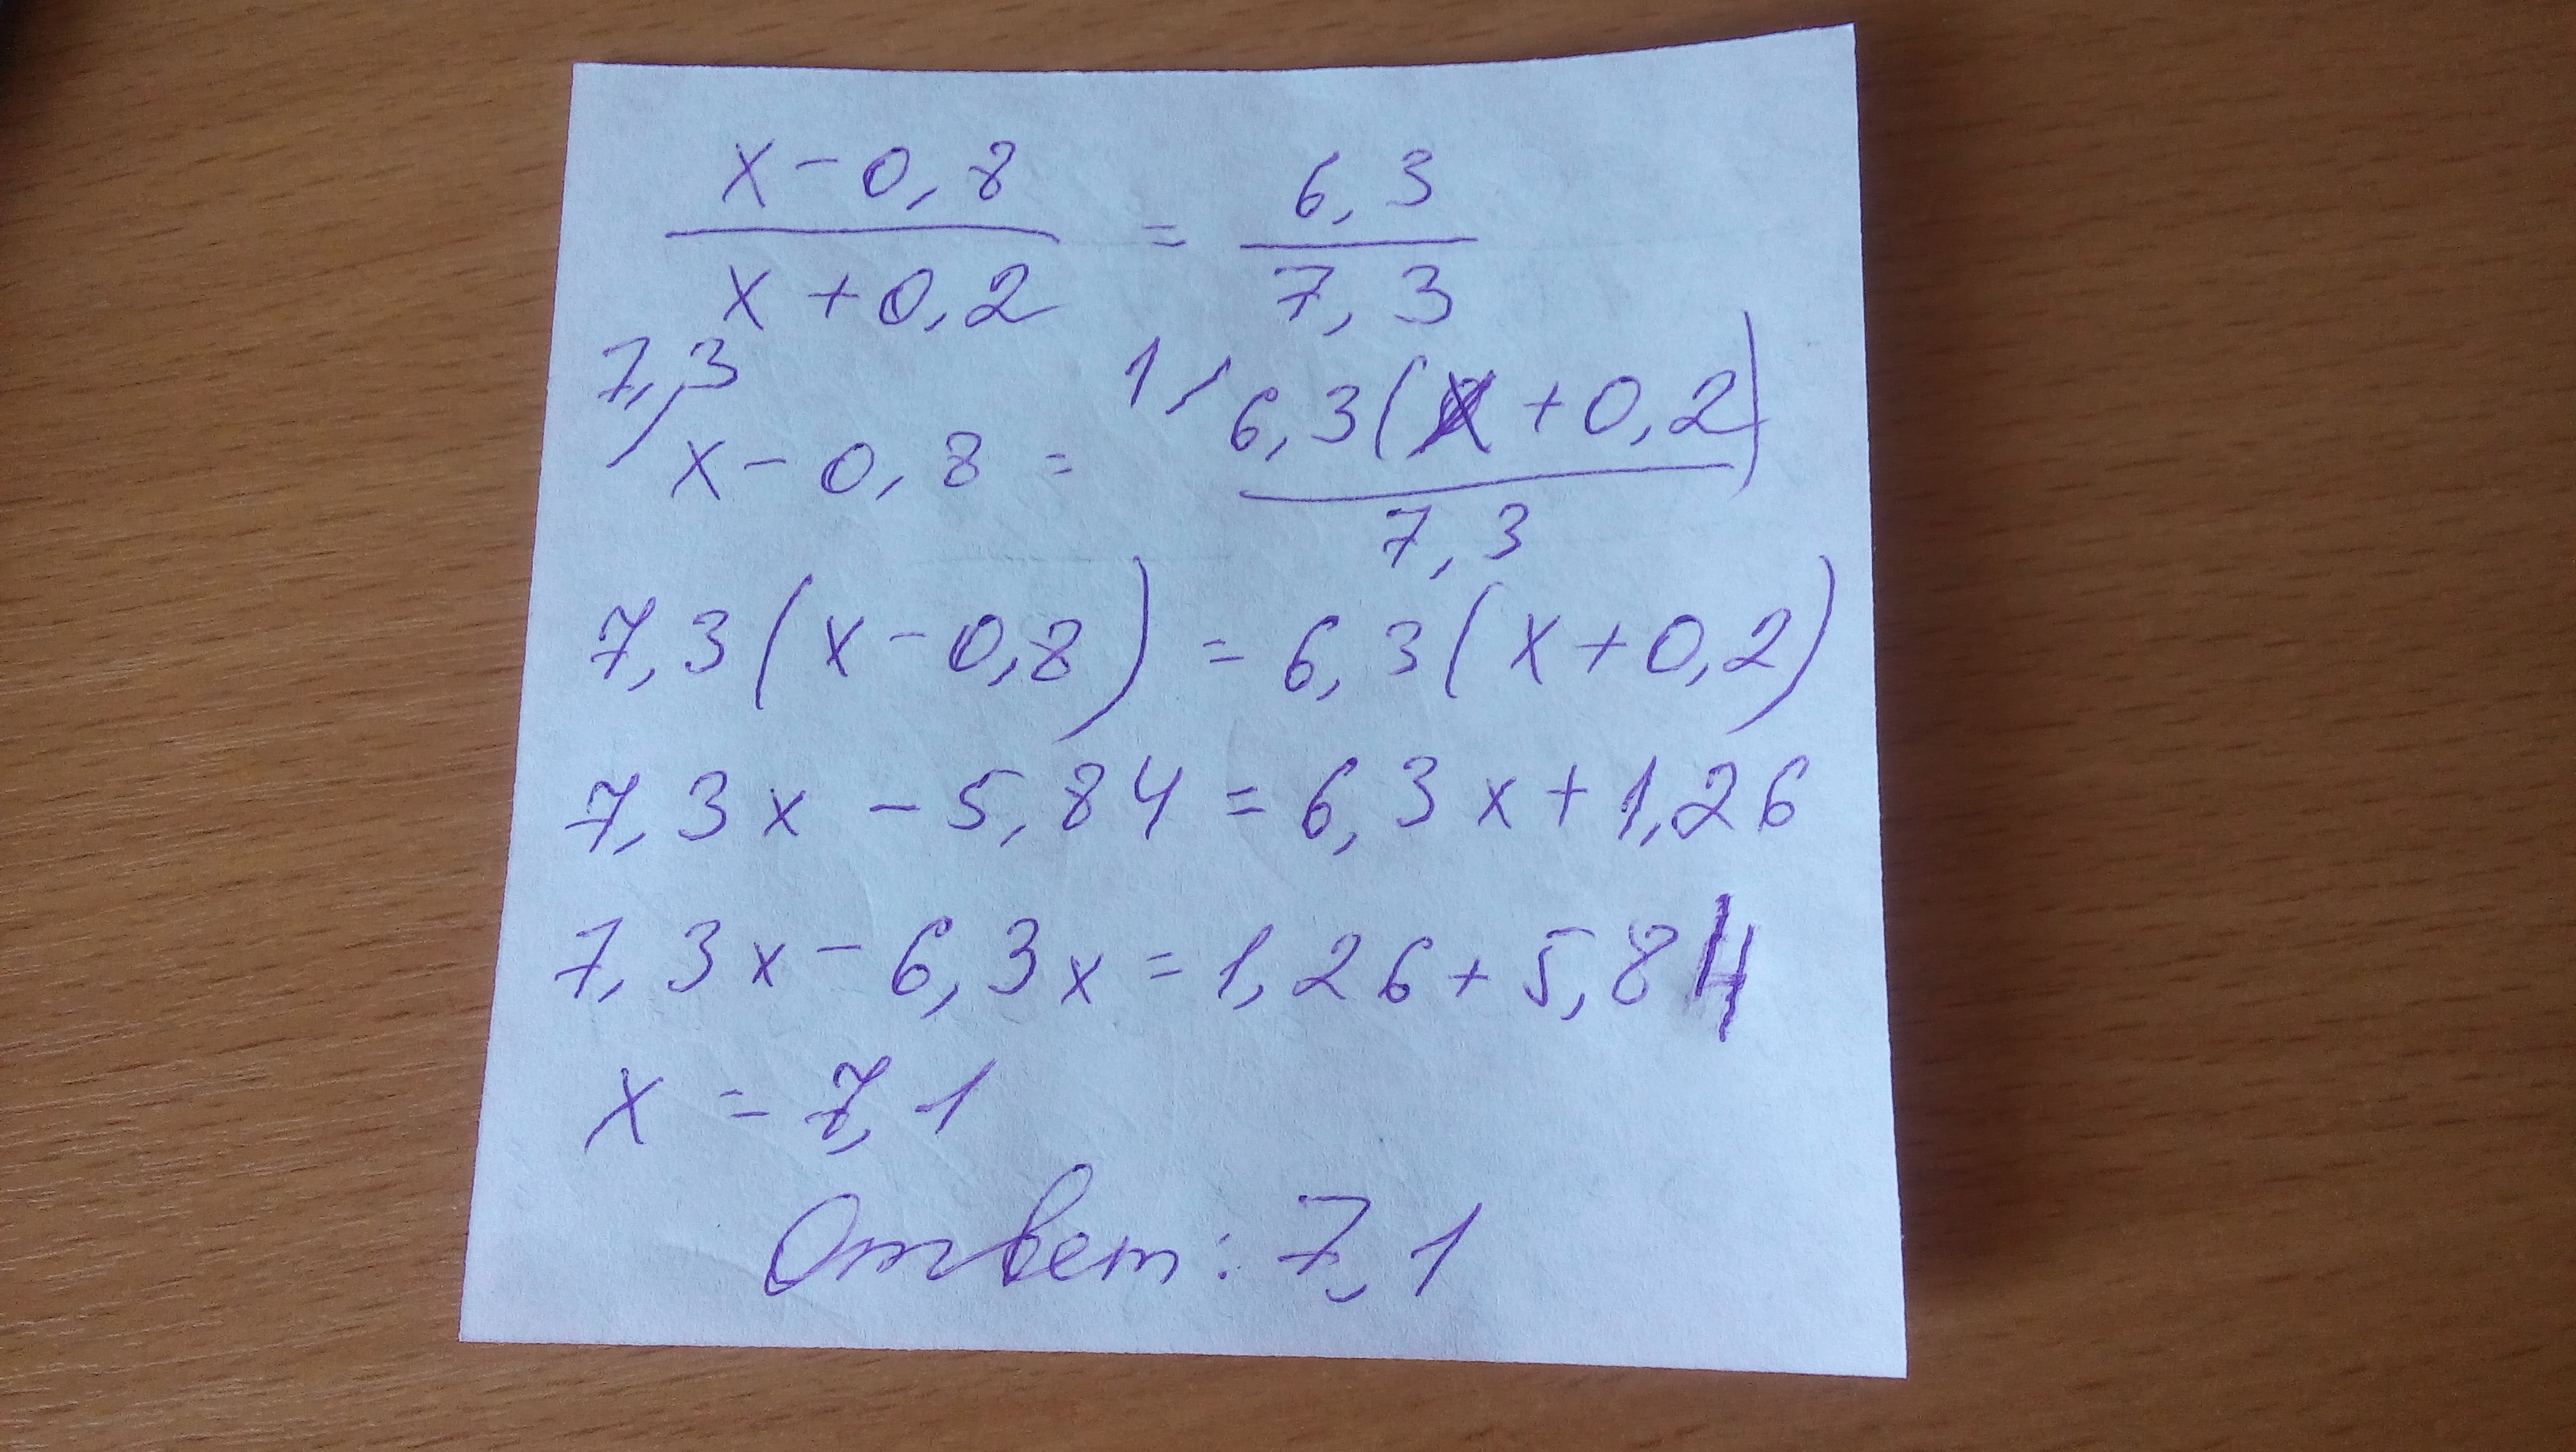 x-0,8 / x+0,2 = 6,3 / 7,3
7,3/ x-0,8 = 1/ 6,3(x+0,2) / 7,3
7,3(x-0,8) = 6,3(x+0,2)
7,3x - 5,84 = 6,3x + 1,26
7,3x - 6,3x = 1,26 + 5,84
x = 7,1
Ответ: 7,1